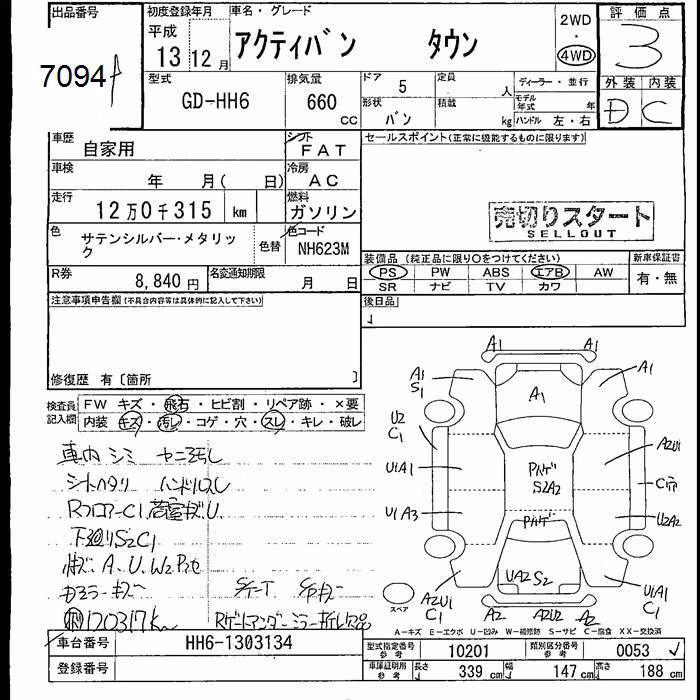 出品番号
7094
初度登録年月
平成
13 12月
車名・グレード
アクティバン タウン
2WD
・
4WD
評価点
3
型式
GD-HH6
排気量
660
cc
ドア
5
形状
バン
定員
人
積載
kg
ディーラー・並行
モデル年式
年
ハンドル 左・右
外装 内装
D C
車歴
自家用
シフト
FAT
車検
年 月( 日)
冷房
AC
走行
12万0千315 km
燃料
ガソリン
色
サテンシルバー・メタリック
色替
色コード
NH623M
R券
8,840円
名変通知期限
月 日
セールスポイント(正常に機能するものに限ります)
売切りスタート
SELLOUT
装備品 (純正品に限り○をつけてください)
PS PW ABS エアB AW
SR ナビ TV カワ
新車保証書
有・無
後日品
注意事項申告欄(不具合内容等は具体的に記入して下さい)
修復歴 有〔箇所 〕
検査員記入欄
FW キズ・飛石・ヒビ割・リペア跡・×要
内装 キズ・汚レ・コゲ・穴・スレ・キレ・破レ
車内シミ ヤニ汚レ
シートヘタリ ハンドルスレ
RフロアーC1 荷室キズU
下廻りS2C1
A、U、W2
120317km
A1 A1
A1
S1
A1
A1
U2
C1
U1A1
U1A3
S2A2
A2U1
U2A2
UA2S2
A2U1
C1
U1A1
C1
A2 A2U2 A2
スペア
A-キズ E-エクボ U-凹み W-補修跡 S-サビ C-腐食 XX-交換済
車台番号
HH6-1303134
登録番号
型式指定番号
参考
10201
類別区分番号
参考
0053
車庫証明用
参考
長さ
339 cm
幅
147 cm
高さ
188 cm